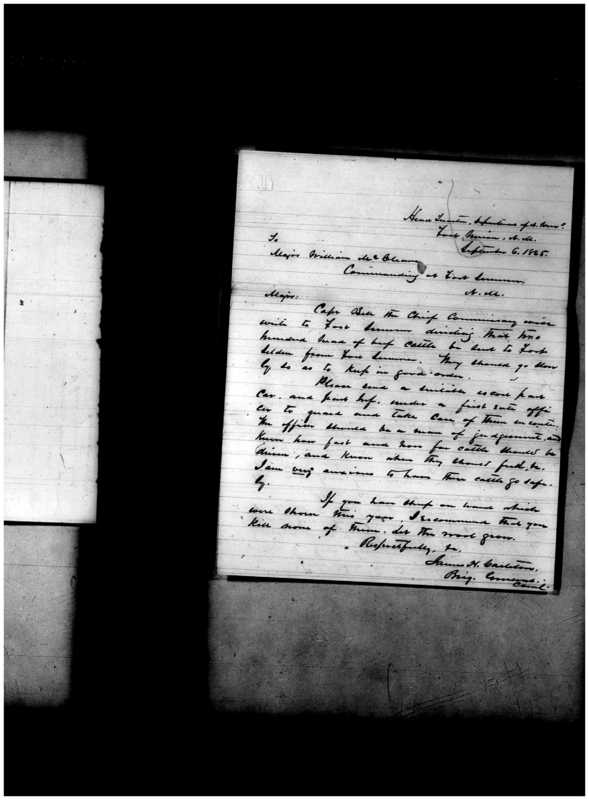 Head Quarters, Department of N. Mexo.
Fort Union, N.M.
September 6, 1865.
To
Major William McCleave
Commanding at Fort Sumner,
N. M.
Major:
Capt Bell the Chief Commissary will
write to Fort Sumner directing that two
hundred head of beef cattle be sent to Fort
Selden from Fort Sumner. They should go slow
ly so as to keep in good order.
Please send a suitable escort part
Cav. and part Inf. under a first rate offi
cer to guard and take care of them en route.
The officer should be a man of judgement, and
know how fast and how far cattle should be
driven, and know when they should feed, &c.
I am very anxious to have these cattle go safe-
ly.
If you have sheep on hand which
were shorn this year, I recommend that you
kill none of them. Let the wool grow.
Respectfully, &c.
James H. Carleton,
Brig. General
Comd.